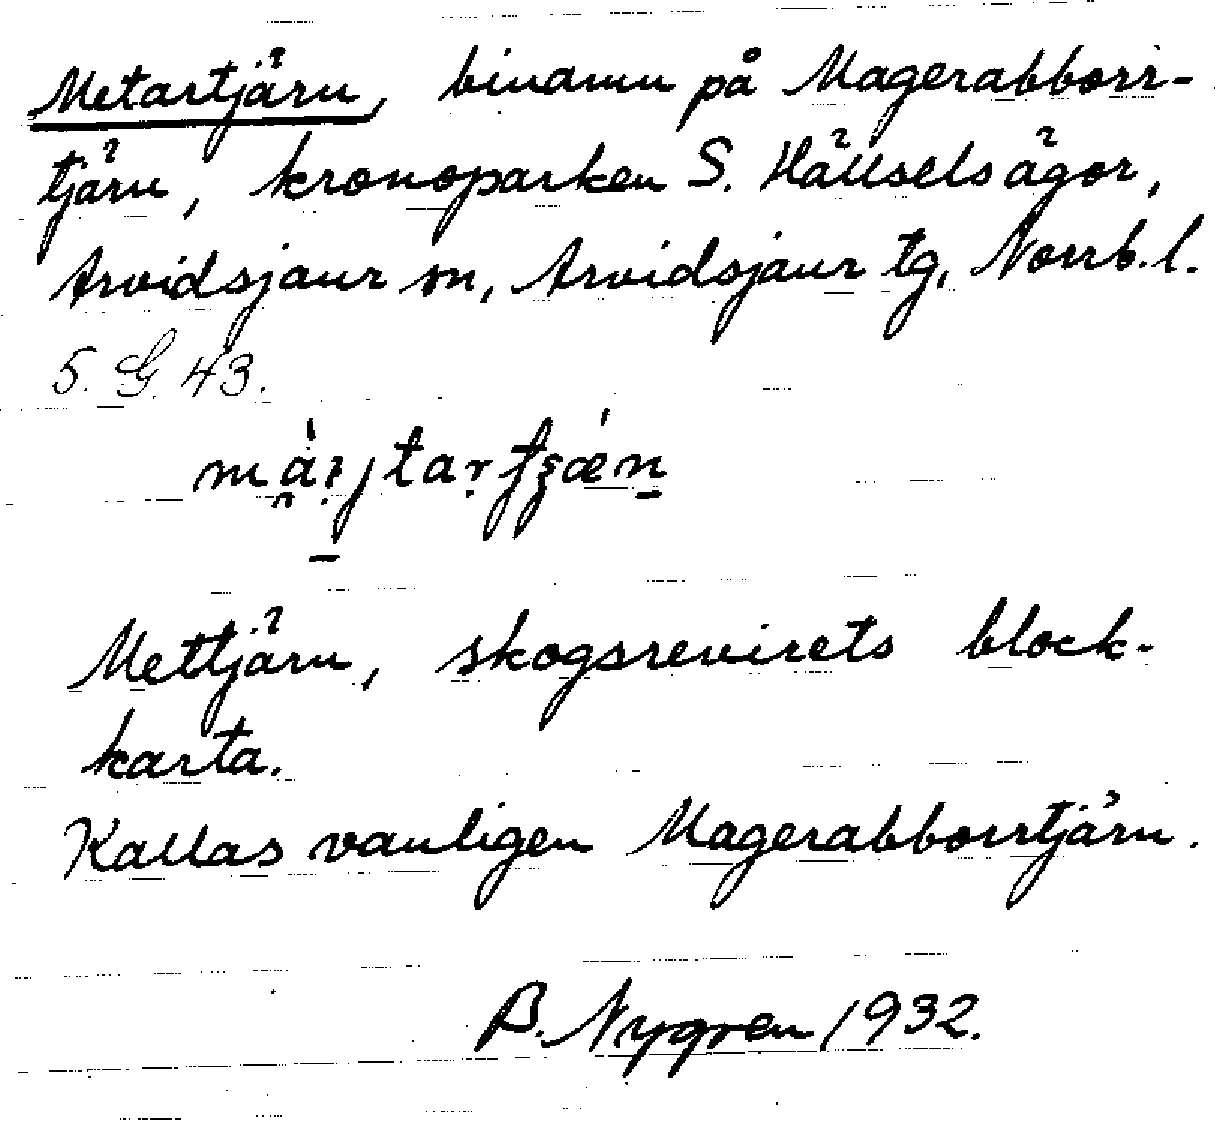 Metartjärn, binamn på Magerabborr-
tjärn, kronoparken S. Hällselsägor,
Arvidsjaur sn, Arvidsjaur tg, Norrb. l.
5. G. 43.
Mettjärn, skogsrevirets block-
karta.
Kallas vanligen Magerabborrtjärn.
B. Nygren 1932.